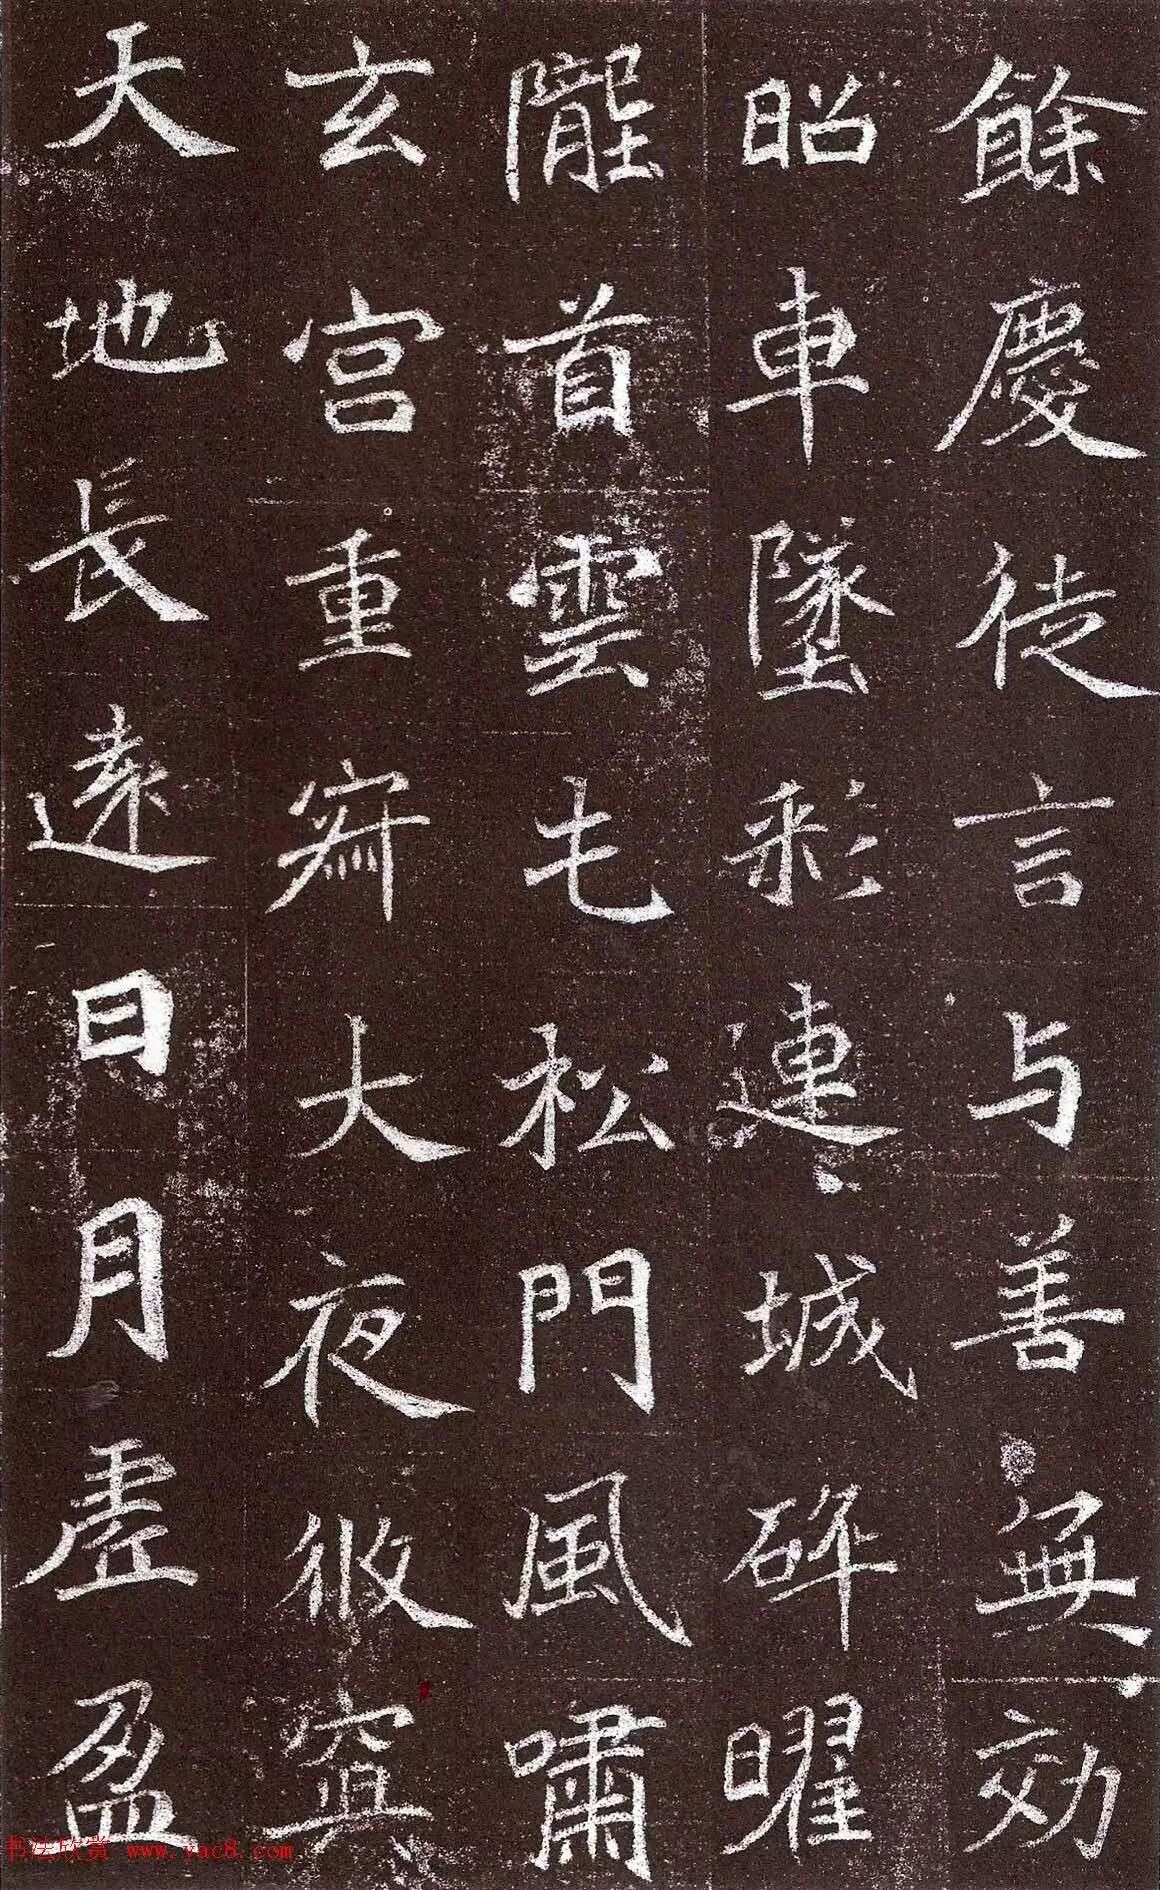 餘慶徒言与善無効
昭車墜彩連城碎曜
隴首雲屯松門風嘯
玄宮重寂大夜攸寘
天地長遠日月虛盈
书法欣赏 www.yac8.com